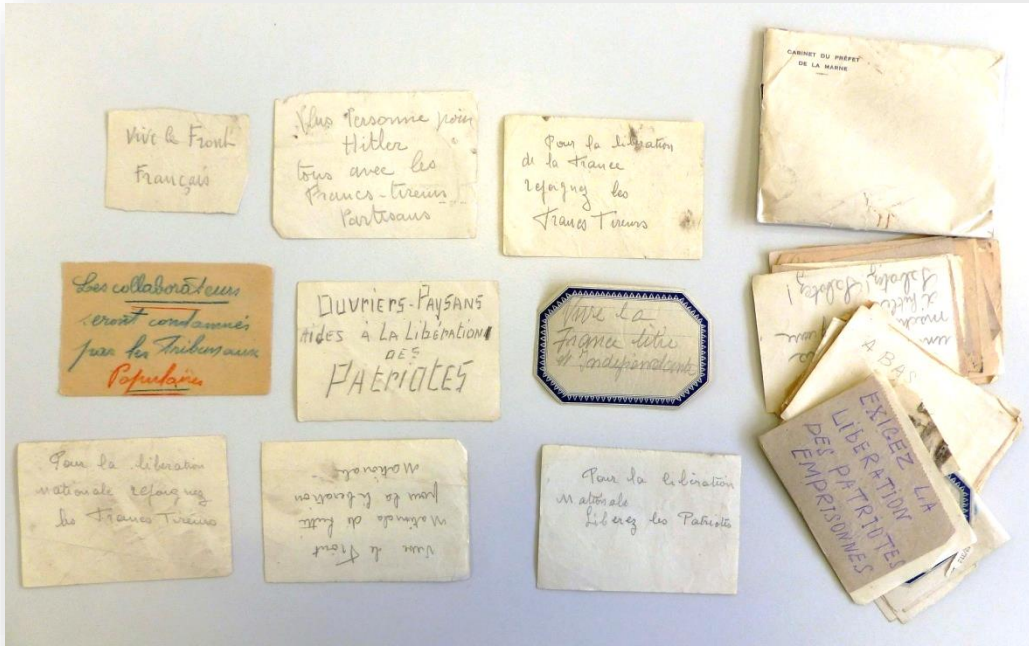 Vive le Front
Français
Plus Personne pour
Hitler
tous avec les
Francs-tireurs
Partisans
Pour la libération
de la France
rejoignez les
Francs Tireurs
CABINET DU PRÉFET
DE LA MARNE
Les collaborateurs
seront condamnés
par les Tribunaux
Populaires
OUVRIERS-PAYSANS
AIDES À LA LIBÉRATION
DES
PATRIOTES
Vive la
France libre
et indépendante
Pour la libération
nationale rejoignez
les Francs Tireurs
Vive le Front
Nationale de lutte
pour la libération
Nationale
Pour la libération
Nationale
Liberez les Patriotes
A BAS
EXIGEZ LA
LIBERATION
DES PATRIOTES
EMPRISONNES